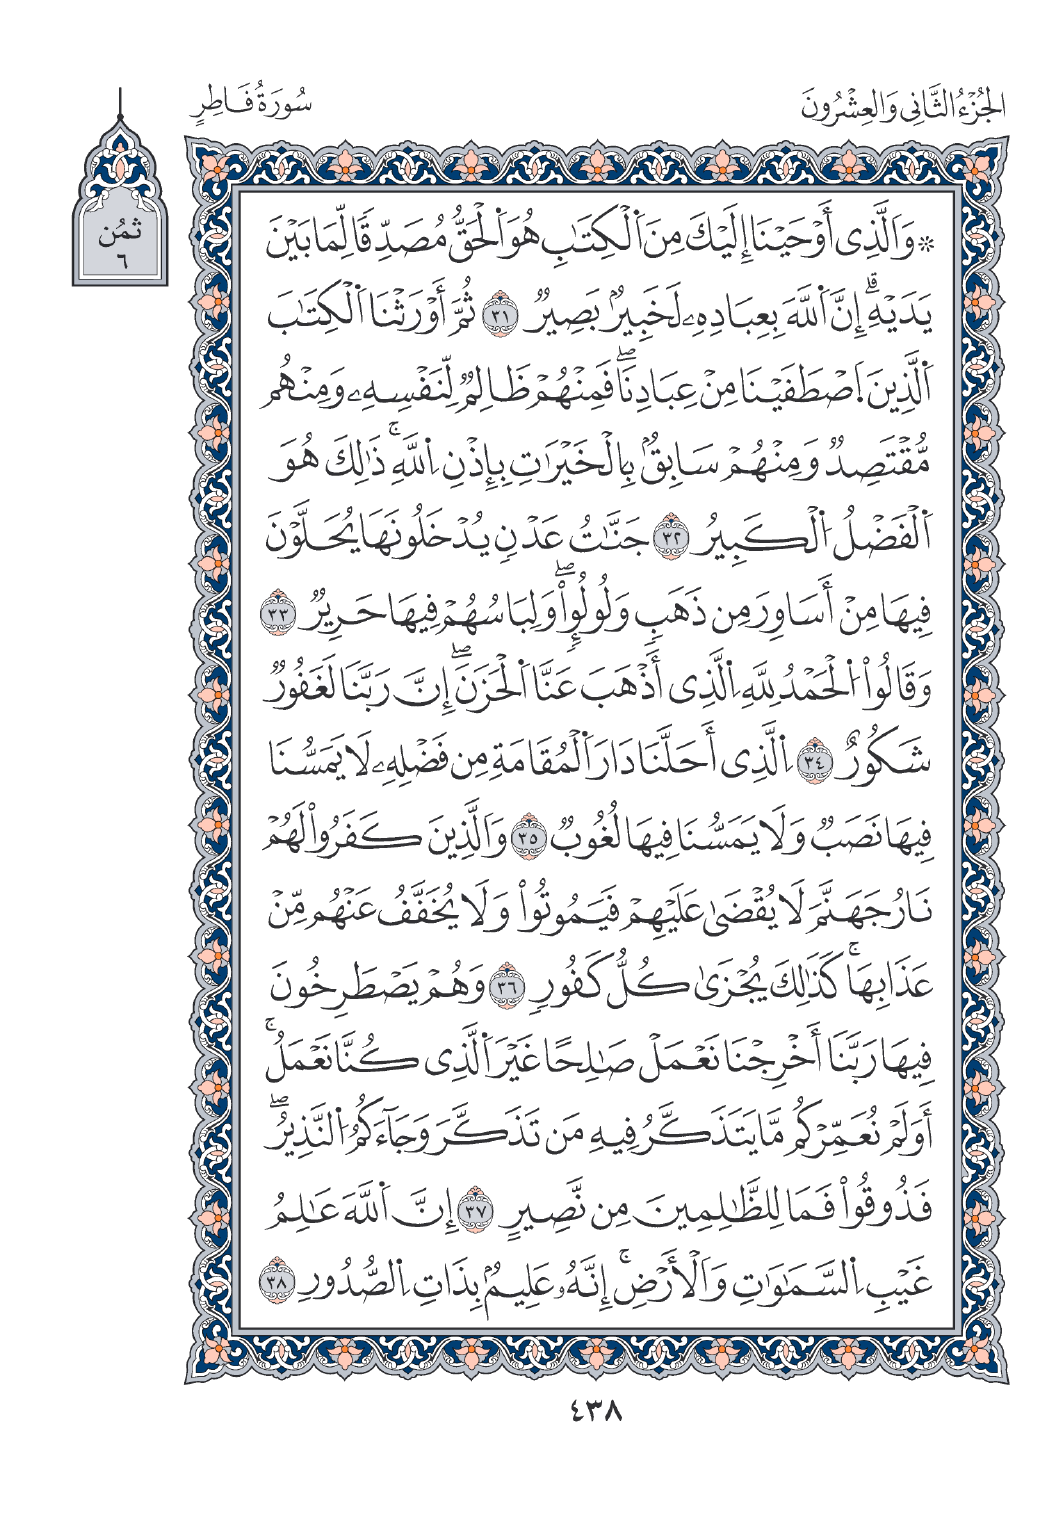 الجُزْءُ الثَّانِي وَالعِشْرُونَ
سُورَةُ فَاطِرٍ
ثمُن
٦
۞ وَالَّذِى أَوْحَيْنَا إِلَيْكَ مِنَ اَ۬لْكِتَٰبِ هُوَ اَ۬لْحَقُّ مُصَدِّقًا لِّمَا بَيْنَ
يَدَيْهِۗ إِنَّ اَ۬للَّهَ بِعِبَادِهِۦ لَخَبِيرُۢ بَصِيرٌ ٣١ ثُمَّ أَوْرَثْنَا اَ۬لْكِتَٰبَ
اَ۬لَّذِينَ اَ۪صْطَفَيْنَا مِنْ عِبَادِنَاۖ فَمِنْهُمْ ظَالِمٌ لِّنَفْسِهِۦ وَمِنْهُم
مُّقْتَصِدٌ وَمِنْهُمْ سَابِقُۢ بِالْخَيْرَٰتِ بِإِذْنِ اِ۬للَّهِۚ ذَٰلِكَ هُوَ
اَ۬لْفَضْلُ اُ۬لْكَبِيرُ ٣٢ جَنَّٰتُ عَدْنٍ يُدْخَلُونَهَا يُحَلَّوْنَ
فِيهَا مِنْ أَسَاوِرَ مِن ذَهَبٍ وَلُولُؤٍاۖ وَلِبَاسُهُمْ فِيهَا حَرِيرٌ ٣٣
وَقَالُواْ اُ۬لْحَمْدُ لِلَّهِ اِ۬لَّذِى أَذْهَبَ عَنَّا اَ۬لْحَزَنَۖ إِنَّ رَبَّنَا لَغَفُورٌ
شَكُورٌ ٣٤ اِ۬لَّذِى أَحَلَّنَا دَارَ اَ۬لْمُقَامَةِ مِن فَضْلِهِۦ لَا يَمَسُّنَا
فِيهَا نَصَبٌ وَلَا يَمَسُّنَا فِيهَا لُغُوبٌ ٣٥ وَالَّذِينَ كَفَرُواْ لَهُمْ
نَارُ جَهَنَّمَ لَا يُقْضَىٰ عَلَيْهِمْ فَيَمُوتُواْ وَلَا يُخَفَّفُ عَنْهُم مِّنْ
عَذَابِهَاۚ كَذَٰلِكَ يُجْزَىٰ كُلُّ كَفُورٍ ٣٦ وَهُمْ يَصْطَرِخُونَ
فِيهَا رَبَّنَا أَخْرِجْنَا نَعْمَلْ صَٰلِحًا غَيْرَ اَ۬لَّذِى كُنَّا نَعْمَلُۚ
أَوَلَمْ نُعَمِّرْكُم مَّا يَتَذَكَّرُ فِيهِ مَن تَذَكَّرَ وَجَآءَكُمُ اُ۬لنَّذِيرُۖ
فَذُوقُواْ فَمَا لِلظَّٰلِمِينَ مِن نَّصِيرٍ ٣٧ إِنَّ اَ۬للَّهَ عَٰلِمُ
غَيْبِ اِ۬لسَّمَٰوَٰتِ وَالْأَرْضِۚ إِنَّهُۥ عَلِيمُۢ بِذَاتِ اِ۬لصُّدُورِ ٣٨
٤٣٨